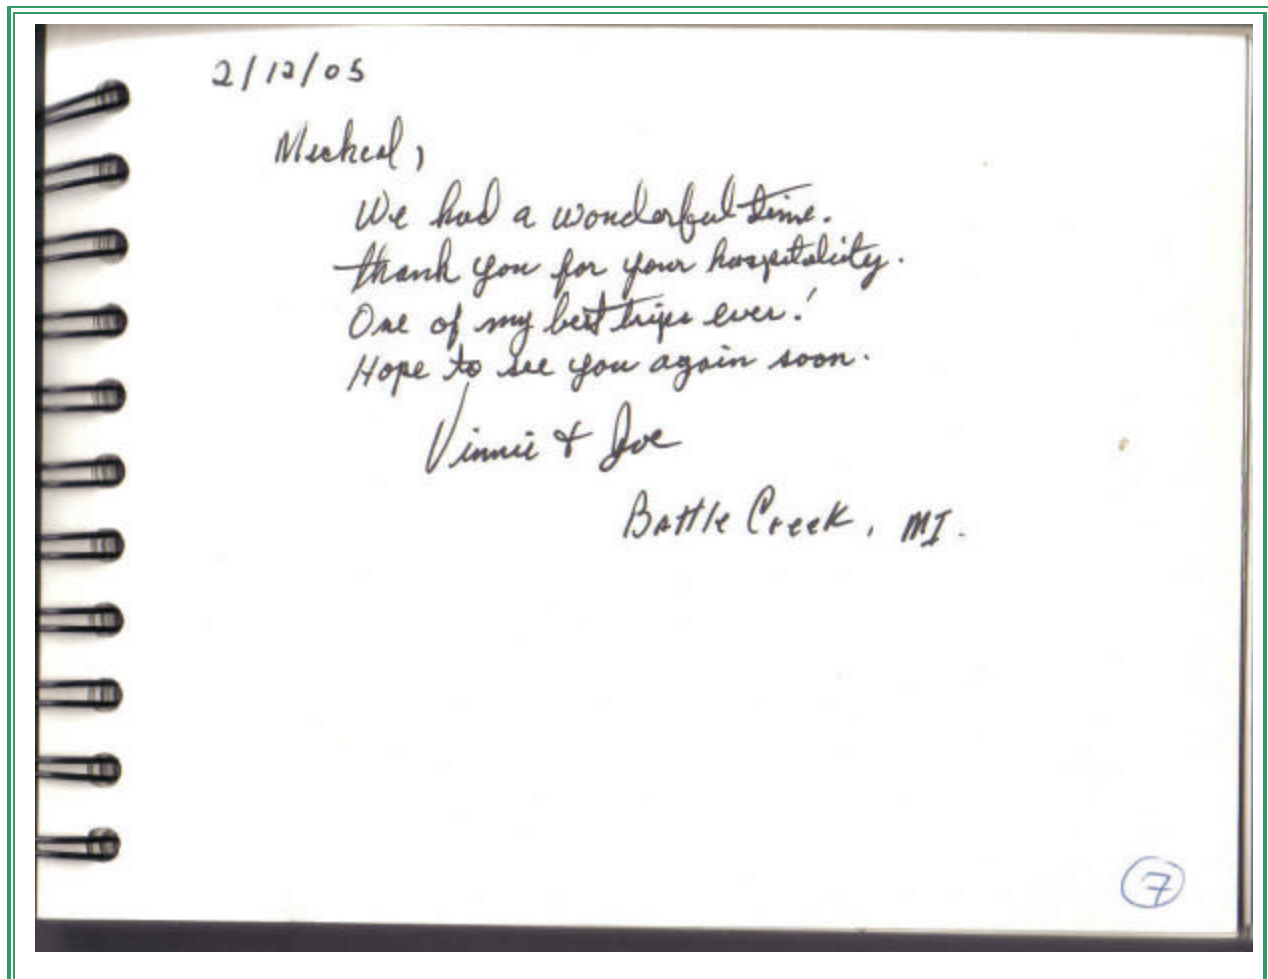 2/12/05
Micheal,
We had a wonderful time.
thank you for your hospitality.
One of my best trips ever!
Hope to see you again soon.
Vinnie + Joe
Battle Creek, MI.
7